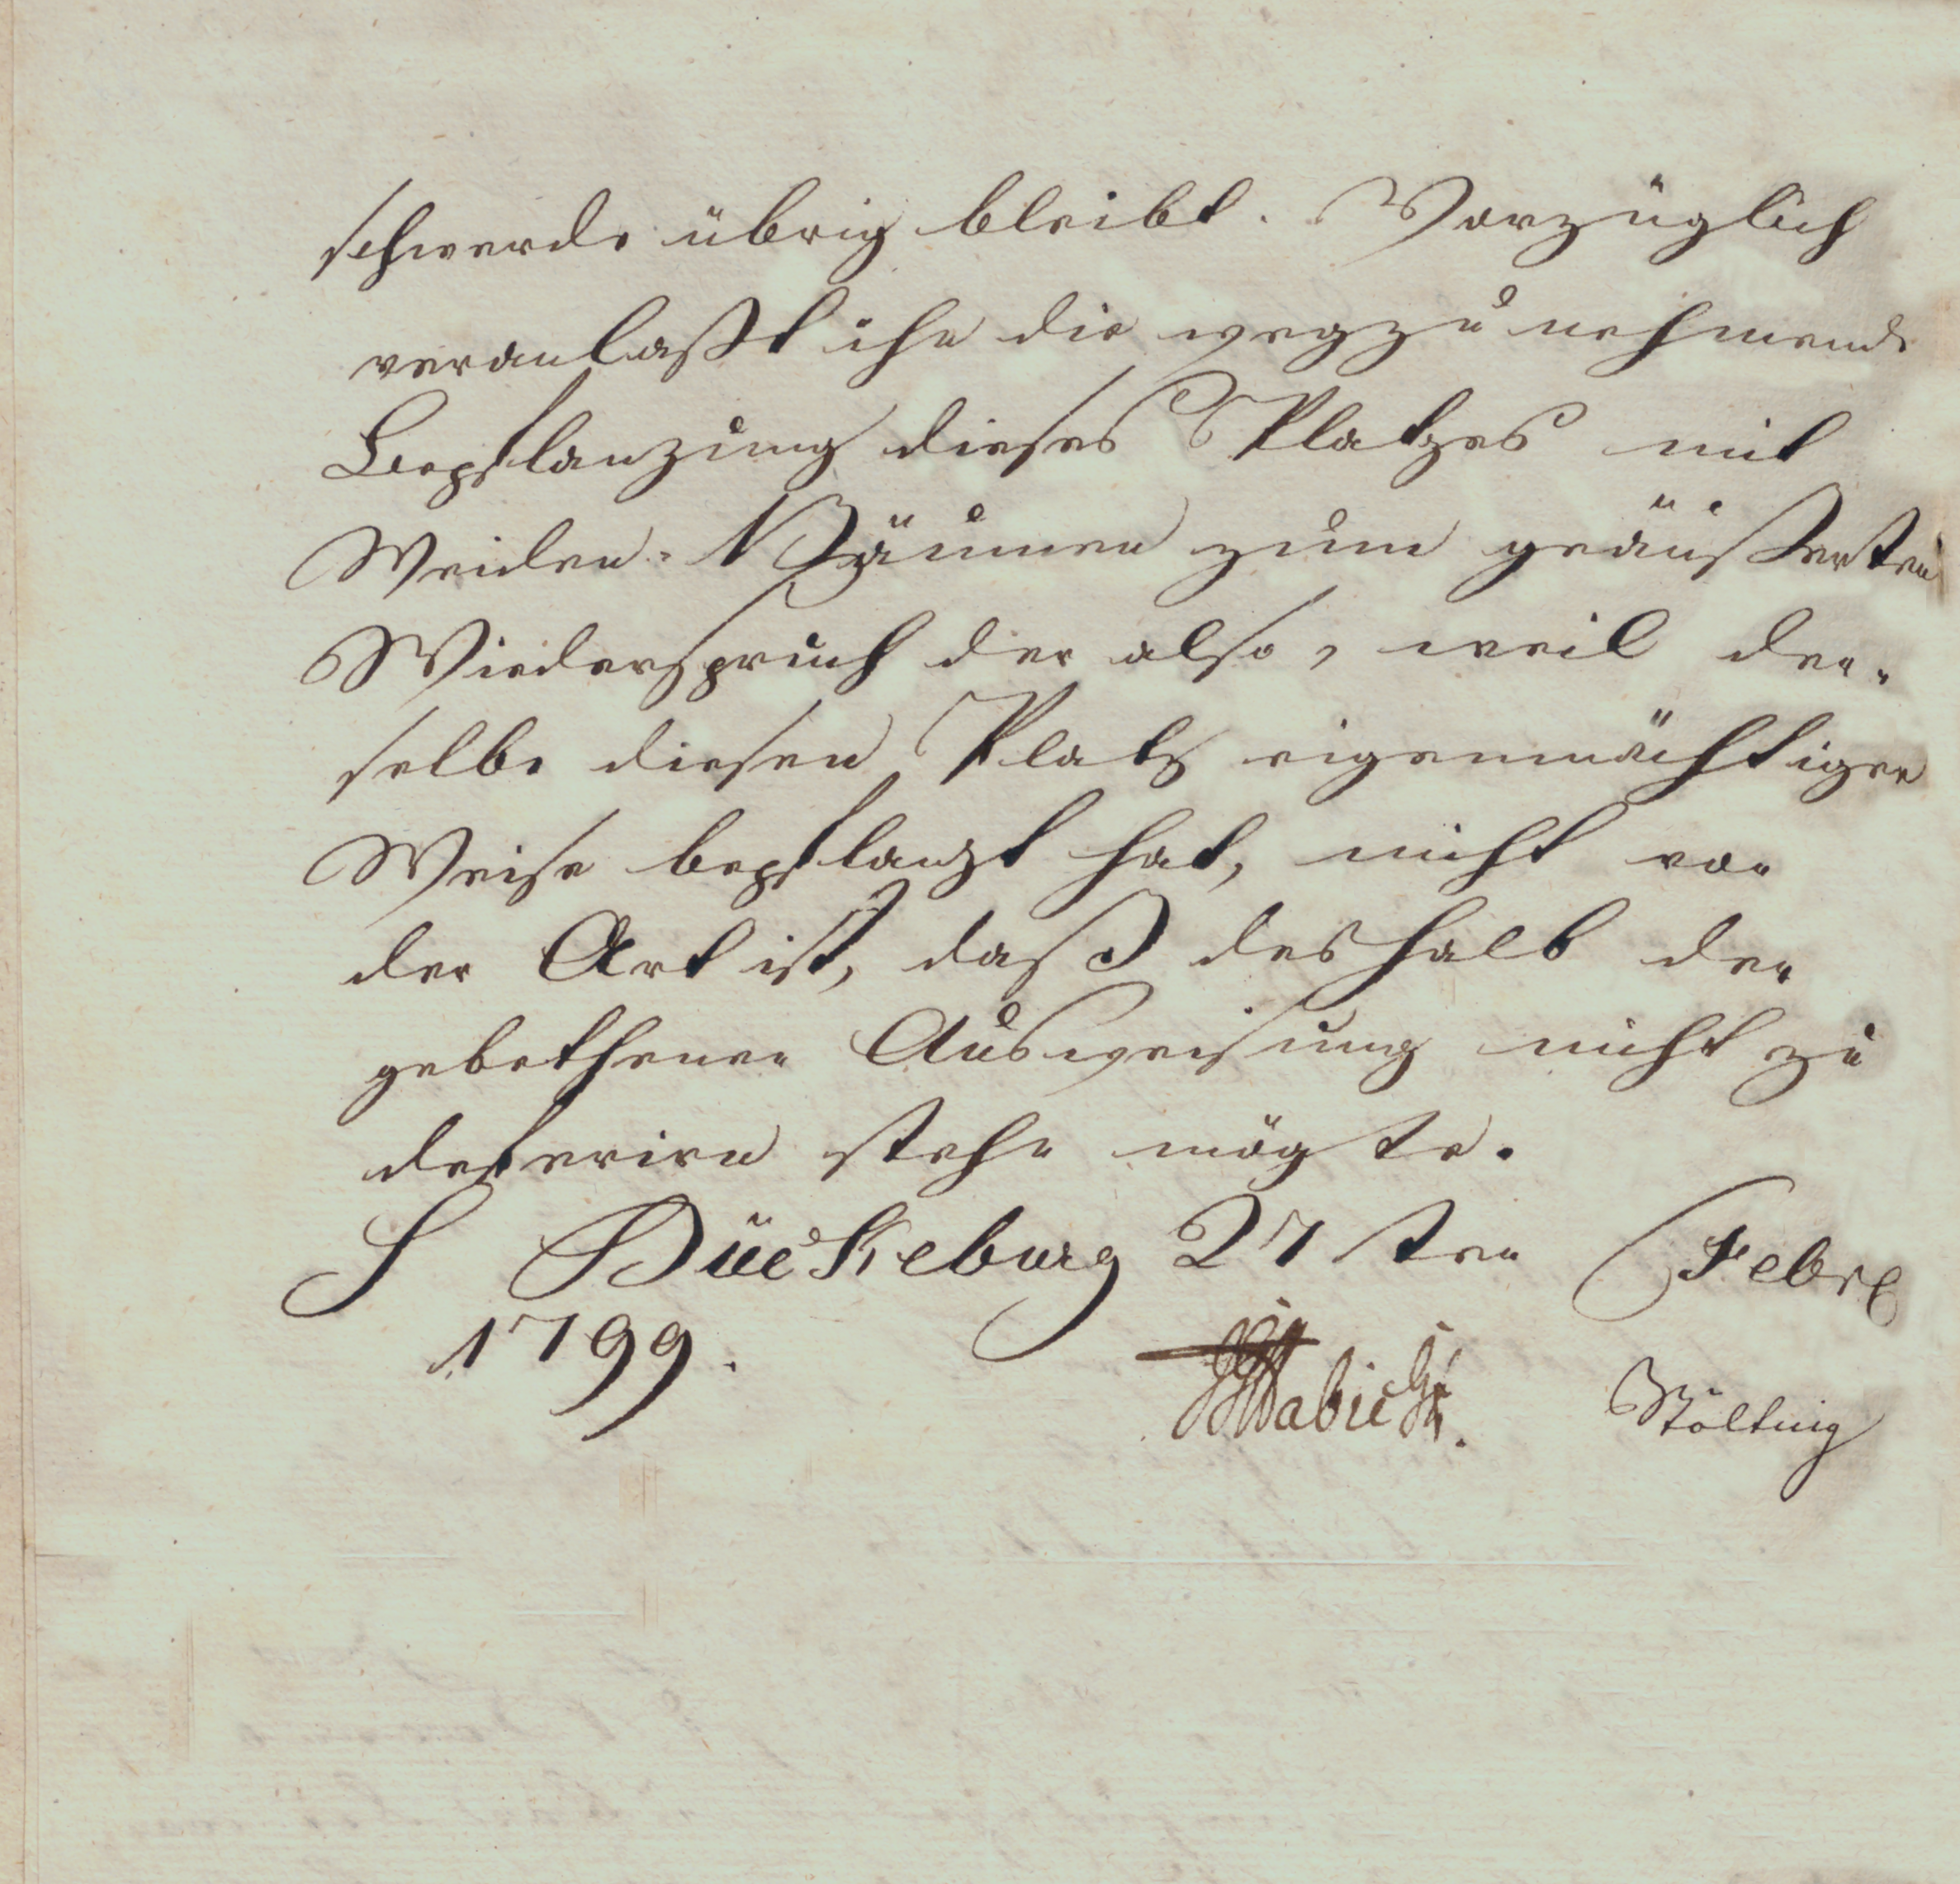 schwerde übrig bleibt. Vorzüglich
veranlaßt ihn die wegzunehmende
Bepflanzung dieses Platzes mit
Weiden-Bäumen zum geäußerten
Wiederspruch der also, weil der-
selbe diesen Platz eigenmächtiger
Weise bepflanzt hat, nicht von
der Art ist, daß deshalb der
gebethenen Ausweisung nicht zu
deferiren stehn mögte.
S Bückeburg 27sten Febr
1799.
Habicht. Nöltnig